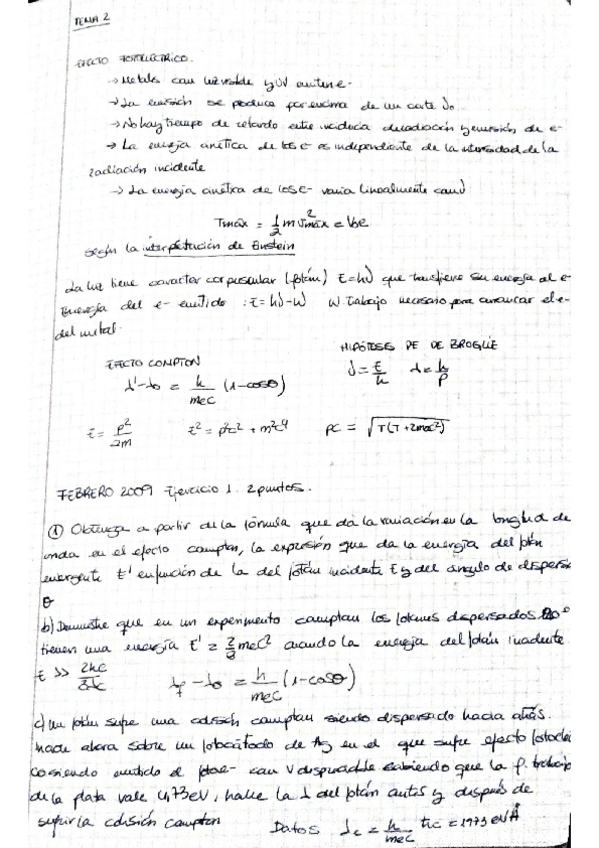 TEMA 2
EFECTO FOTOELÉCTRICO.
→ Metales con luz visible y UV emiten e-
→ La emisión se produce por encima de un corte ν₀
→ No hay tiempo de retardo entre incidencia de radiación y emisión de e-
→ La energía cinética de los e- es independiente de la intensidad de la
radiación incidente
→ La energía cinética de los e- varia linealmente con ν
Tmáx = 1/2 m v²máx = V₀e
según la interpretación de Einstein
La luz tiene carácter corpuscular (fotón) E=hν que transfiere su energía al e-
Energía del e- emitido : E=hν-W W. Trabajo necesario para arrancar el e-
del metal.
HIPÓTESIS DE DE BROGLIE
EFECTO COMPTON
λ'-λ₀ = h/mec (1-cosθ) ν = E/h λ = h/p
E = p²/2m E² = p²c² + m²c⁴ pc = √T(T+2moc²)
FEBRERO 2009 Ejercicio 1. 2 puntos.
① Obtenga a partir de la fórmula que da la variación en la longitud de
onda en el efecto compton, la expresión que da la energía del fotón
emergente E' en función de la del fotón incidente E y del angulo de dispersi
θ
b) Demuestre que en un experimento compton los fotones dispersados
tienen una energía E' = mec² cuando la energía del fotón incidente
E >>
λf - λ₀ = h/mec (1-cosθ)
c) Un fotón sufre una colisión compton siendo dispersado hacia atrás.
Incide ahora sobre un fotocátodo de Ag en el que sufre efecto fotoeléc
siendo emitido el fotoe- con V despreciable sabiendo que la f. trabajo
de la plata vale 4,73eV, halle la λ del fotón antes y después de
sufrir la colisión compton
Datos λc = h/mec ħc = 1973 eVÅ